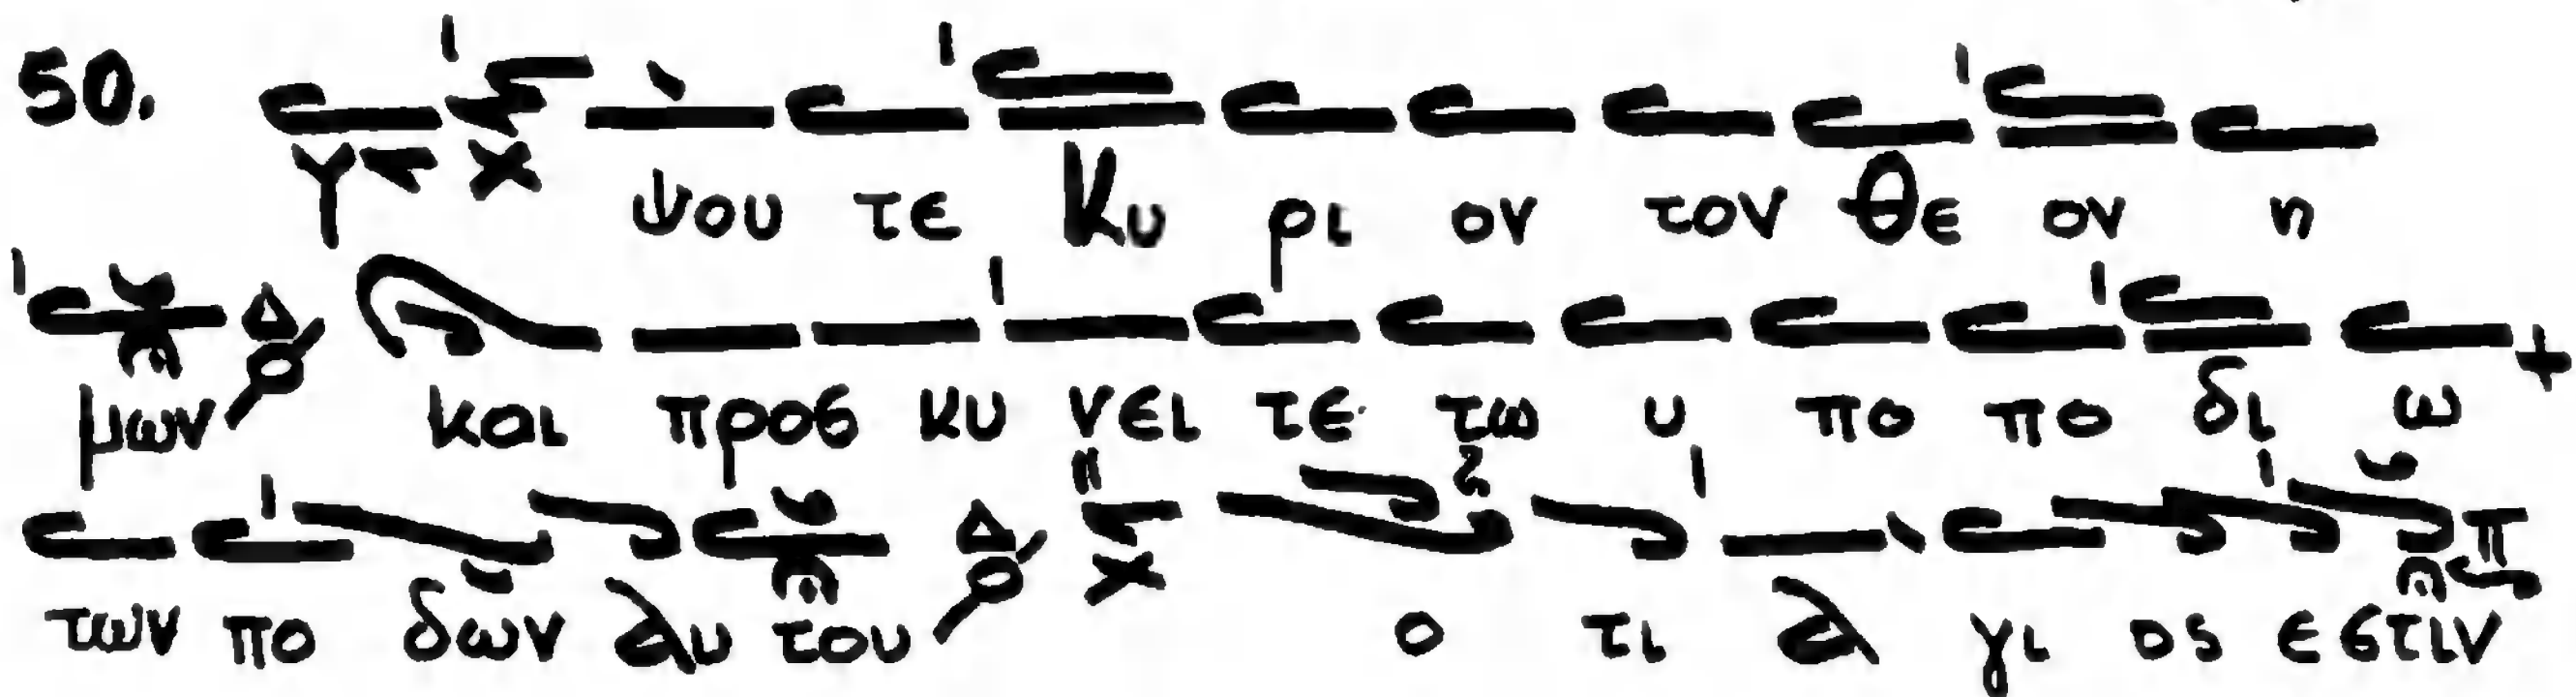 50. Υ ψου τε Κυ ρι ον τον Θε ον η
μων Δ και προσ κυ νει τε τω υ πο πο δι ω +
των πο δων αυ του Δ ο τι α γι ος ε στιν π